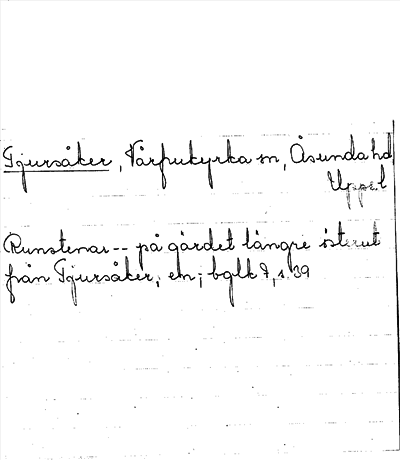 Tjursåker, Vårfrukyrka sn, Åsunda hd
Uppl
Runstenar -- på gärdet längre österut
från Tjursåker, en; bglk 7, s. 39